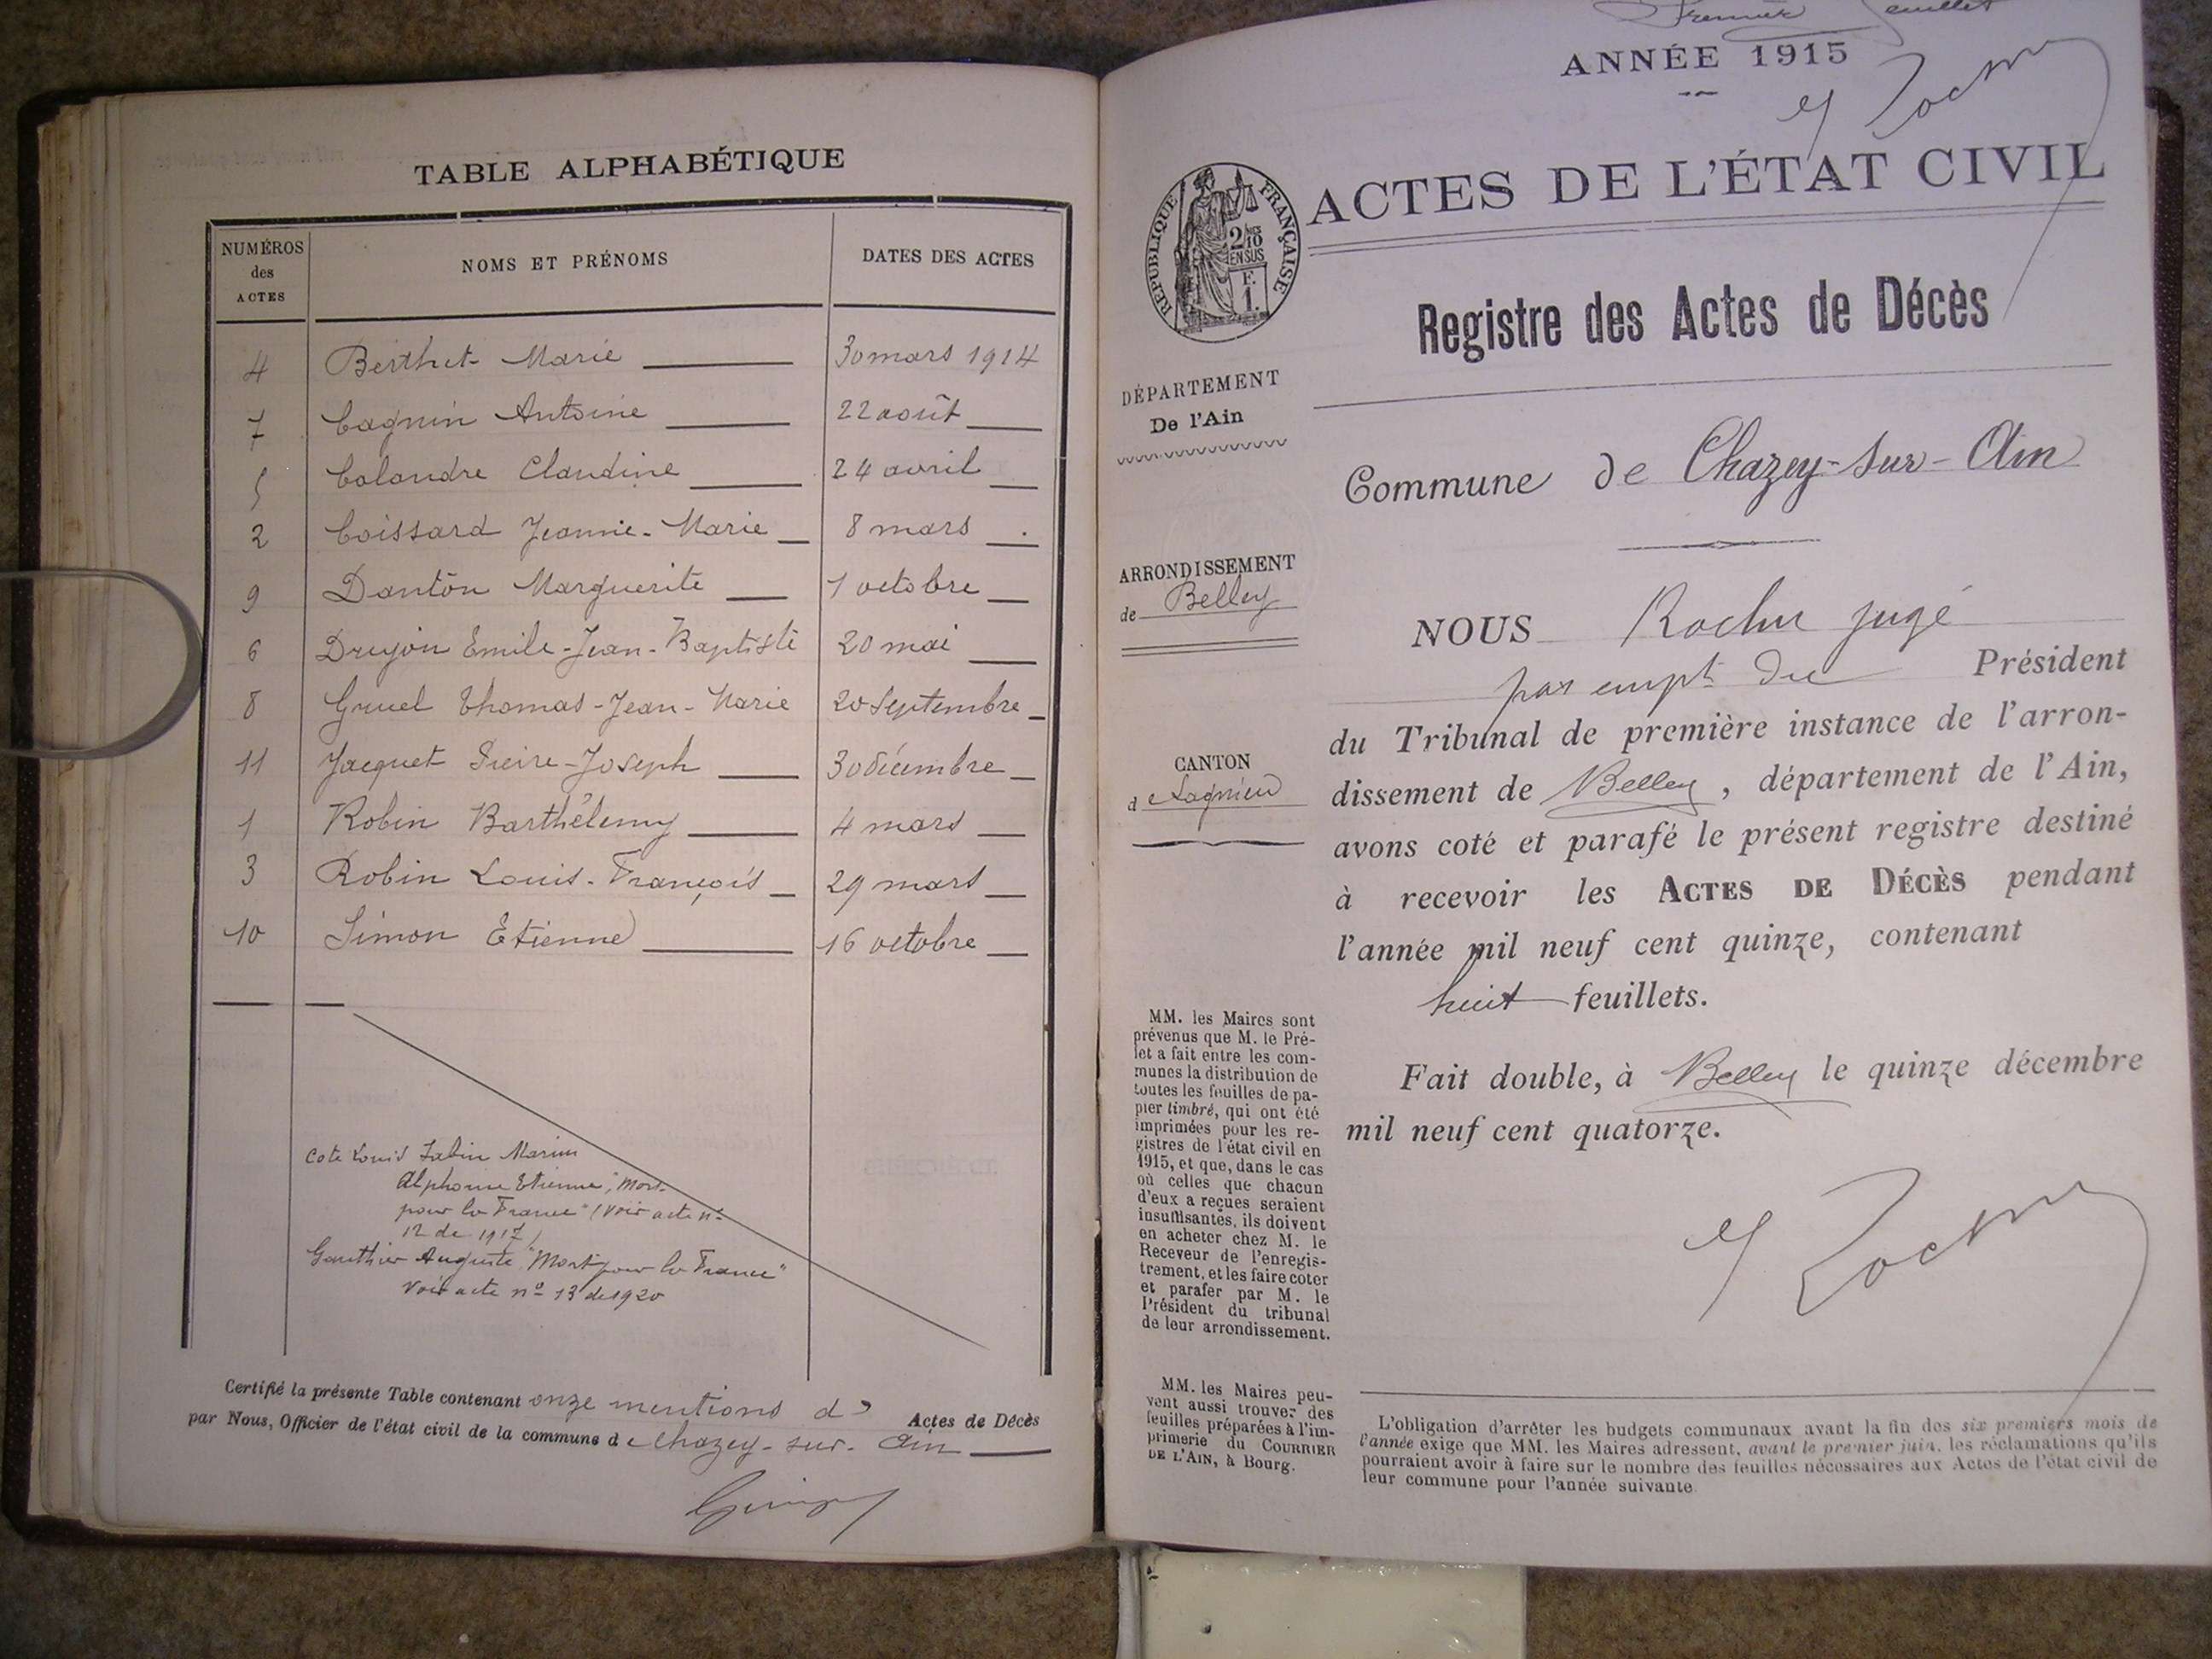 TABLE ALPHABÉTIQUE
NUMÉROS des ACTES
NOMS ET PRÉNOMS
DATES DES ACTES
4 Berthet Marie 30 mars 1914
7 Cagnin Antoine 22 août
5 Calandre Claudine 24 avril
2 Coissard Jeanne-Marie 8 mars
9 Danton Marguerite 1 octobre
6 Drujon Emile-Jean-Baptiste 20 mai
8 Gruel Thomas-Jean-Marie 20 Septembre
11 Jacquet Pierre-Joseph 30 décembre
1 Robin Barthélemy 4 mars
3 Robin Louis-François 29 mars
10 Simon Etienne 16 octobre
Cote Louis Fabin Marius
Alphonse Etienne, "Mort
pour la France" (voir acte n°
12 de 1917)
Gauthier Auguste "Mort pour la France"
Voir acte n° 13 de 1920
Certifié la présente Table contenant onze mentions d Actes de Décès
par Nous, Officier de l'état civil de la commune de Chazey-sur-Ain
Premier feuillet
ANNÉE 1915
ACTES DE L'ÉTAT CIVIL
RÉPUBLIQUE FRANÇAISE
2/10
EN SUS
F.
1.
Registre des Actes de Décès
DÉPARTEMENT
De l'Ain
Commune de Chazey-sur-Ain
ARRONDISSEMENT
de Belley
NOUS Rocher juge
par empt du Président
du Tribunal de première instance de l'arron-
CANTON
de Lagnieu
dissement de Belley, département de l'Ain,
avons coté et parafé le présent registre destiné
à recevoir les ACTES DE DÉCÈS pendant
l'année mil neuf cent quinze, contenant
huit feuillets.
Fait double, à Belley le quinze décembre
mil neuf cent quatorze.
Rocher
MM. les Maires sont
prévenus que M. le Pré-
fet a fait entre les com-
munes la distribution de
toutes les feuilles de pa-
pier timbré, qui ont été
imprimées pour les re-
gistres de l'état civil en
1915, et que, dans le cas
où celles que chacun
d'eux a reçues seraient
insuffisantes, ils doivent
en acheter chez M. le
Receveur de l'enregis-
trement, et les faire coter
et parafer par M. le
Président du tribunal
de leur arrondissement.
MM. les Maires peu-
vent aussi trouver des
feuilles préparées à l'im-
primerie du COURRIER
DE L'AIN, à Bourg.
L'obligation d'arrêter les budgets communaux avant la fin des six premiers mois de
l'année exige que MM. les Maires adressent, avant le premier juin, les réclamations qu'ils
pourraient avoir à faire sur le nombre des feuilles nécessaires aux Actes de l'état civil de
leur commune pour l'année suivante.